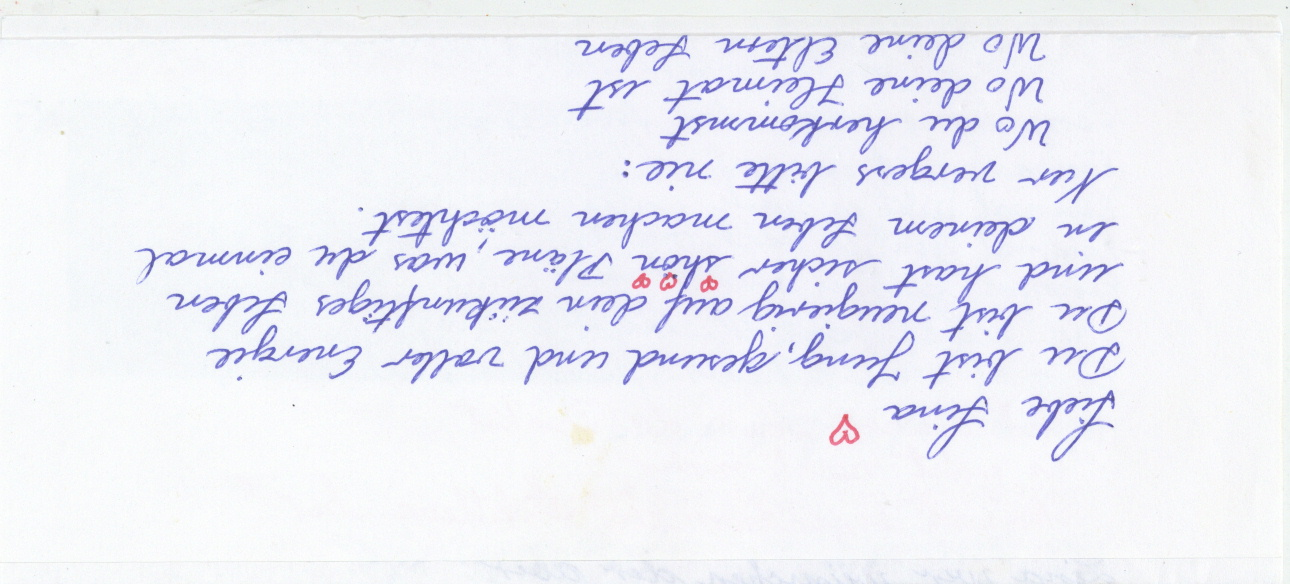 Liebe Lina
Du bist Jung, gesund und voller Energie
Du bist neugierig auf dein zükunftiges Leben
und hast sicher shon Pläne, was du einmal
in deinem Leben machen möchtest.
Nur vergess bitte nie:
Wo du herkommst
Wo deine Heimat ist
Wo deine Eltern Leben